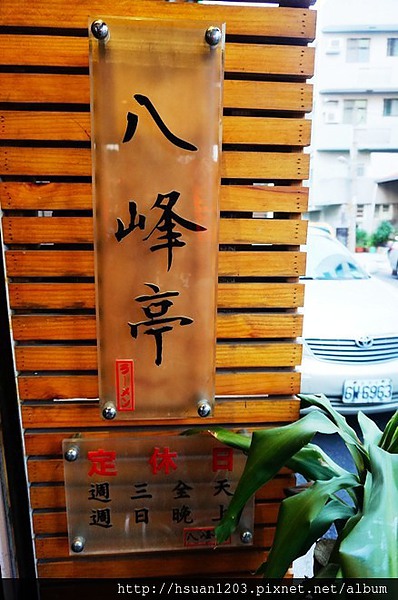 八峰亭
ラーメン
定休日
週三全天
週日晚上
八峰亭
6W6963
http://hsuan1203.pixnet.net/album